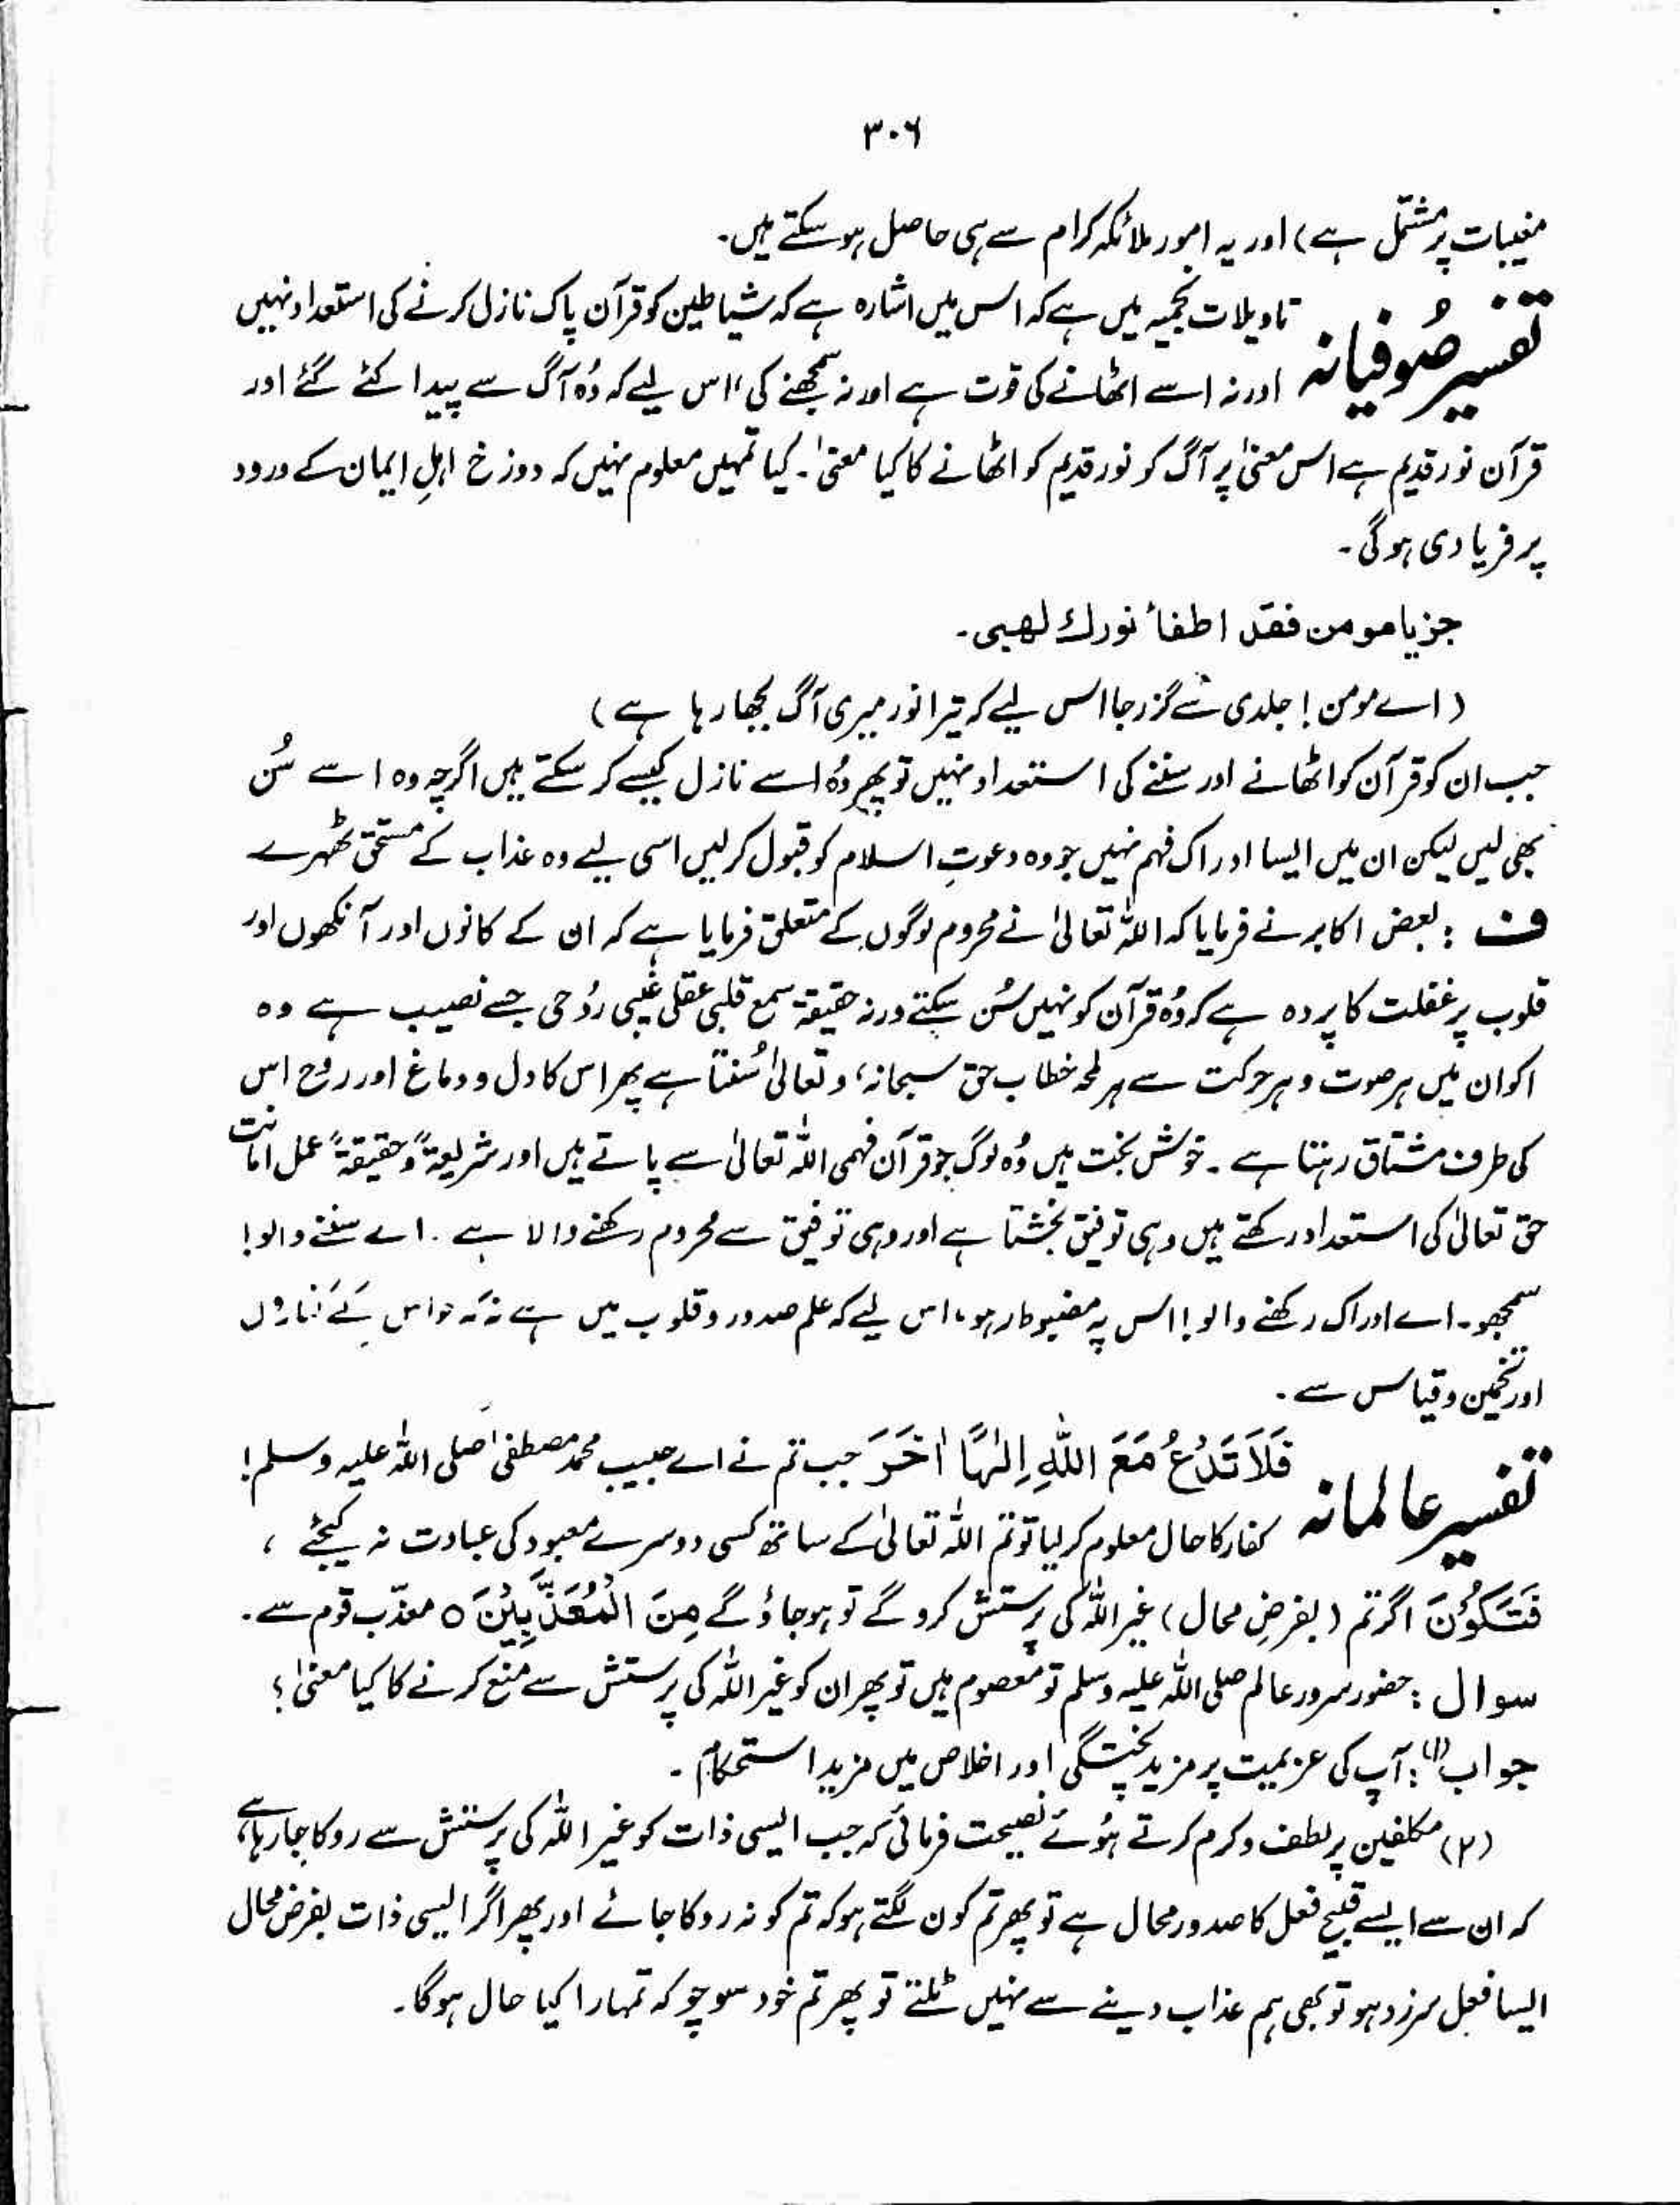 ۳۰۶
مغیبات پر مشتمل ہے) اور یہ امور ملائکہ کرام سے ہی حاصل ہو سکتے ہیں۔
تفسیر صُوفیانہ تاویلات نجمیہ میں ہے کہ اس میں اشارہ ہے کہ شیاطین کو قرآن پاک نازل کرنے کی استعداد نہیں
اور نہ اسے اٹھانے کی قوت ہے اور نہ سمجھنے کی، اس لیے کہ وُہ آگ سے پیدا کئے گئے اور
قرآن نور قدیم ہے اس معنیٰ پر آگ کو نور قدیم کو اٹھانے کا کیا معنیٰ۔ کیا تمہیں معلوم نہیں کہ دوزخ اہلِ ایمان کے ورود
پر فریادی ہوگی۔
جز یا مومن فقد اطفأ نورك لهبی۔
(اے مومن! جلدی سے گزر جا اس لیے کہ تیرا نور میری آگ بجھا رہا ہے)
جب ان کو قرآن کو اٹھانے اور سننے کی استعداد نہیں تو پھر وُہ اسے نازل کیسے کر سکتے ہیں اگرچہ وہ اسے سُن
بھی لیں لیکن ان میں ایسا ادراک فہم نہیں جو وہ دعوتِ اسلام کو قبول کرلیں اسی لیے وہ عذاب کے مستحق ٹھہرے
ف : بعض اکابر نے فرمایا کہ اللہ تعالیٰ نے محروم لوگوں کے متعلق فرمایا ہے کہ ان کے کانوں اور آنکھوں اور
قلوب پر غفلت کا پردہ ہے کہ وُہ قرآن کو نہیں سُن سکتے ورنہ حقیقۃ سمع قلبی عقلی غیبی رُوحی جسے نصیب ہے وہ
اکوان میں ہر صوت و ہر حرکت سے ہر لمحہ خطاب حق سبحانہ، وتعالیٰ سُنتا ہے پھر اس کا دل و دماغ اور روح اس
کی طرف مشتاق رہتا ہے ۔ خوش بخت ہیں وُہ لوگ جو قرآن فہمی اللہ تعالیٰ سے پاتے ہیں اور شریعۃً وحقیقۃً عمل امانت
حق تعالیٰ کی استعداد رکھتے ہیں وہی توفیق بخشتا ہے اور وہی توفیق سے محروم رکھنے والا ہے ۔ اے سننے والو!
سمجھو۔ اے ادراک رکھنے والو! اس پہ مضبوط رہو، اس لیے کہ علم صدور و قلوب میں ہے نہ کہ حواس کے
اور تخمین و قیاس سے ۔
تفسیر عالمانہ فَلَا تَدْعُ مَعَ اللّٰہِ اِلٰہًا اٰخَرَ جب تم نے اے حبیب محمد مصطفیٰ صلی اللہ علیہ وسلم!
کفار کا حال معلوم کر لیا تو تم اللہ تعالیٰ کے ساتھ کسی دوسرے معبود کی عبادت نہ کیجئے ،
فَتَکُوْنَ اگر تم (بفرضِ محال) غیر اللہ کی پرستش کرو گے تو ہو جاؤ گے مِنَ الْمُعَذَّبِیْنَ ○ معذّب قوم سے ۔
سوال : حضور سرور عالم صلی اللہ علیہ وسلم تو معصوم ہیں تو پھر ان کو غیر اللہ کی پرستش سے منع کرنے کا کیا معنیٰ؟
جواب (۱) : آپ کی عزیمیت پر مزید پختگی اور اخلاص میں مزید استحکام ۔
(۲) مکلفین پر لطف و کرم کرتے ہُوئے نصیحت فرمائی کہ جب ایسی ذات کو غیر اللہ کی پرستش سے روکا جا رہا ہے،
کہ ان سے ایسے قبیح فعل کا صدور محال ہے تو پھر تم کون لگتے ہو کہ تم کو نہ روکا جائے اور پھر اگر ایسی ذات بفرض محال
ایسا فعل سرزد ہو تو بھی ہم عذاب دینے سے نہیں ٹلتے تو پھر تم خود سوچو کہ تمہارا کیا حال ہوگا۔